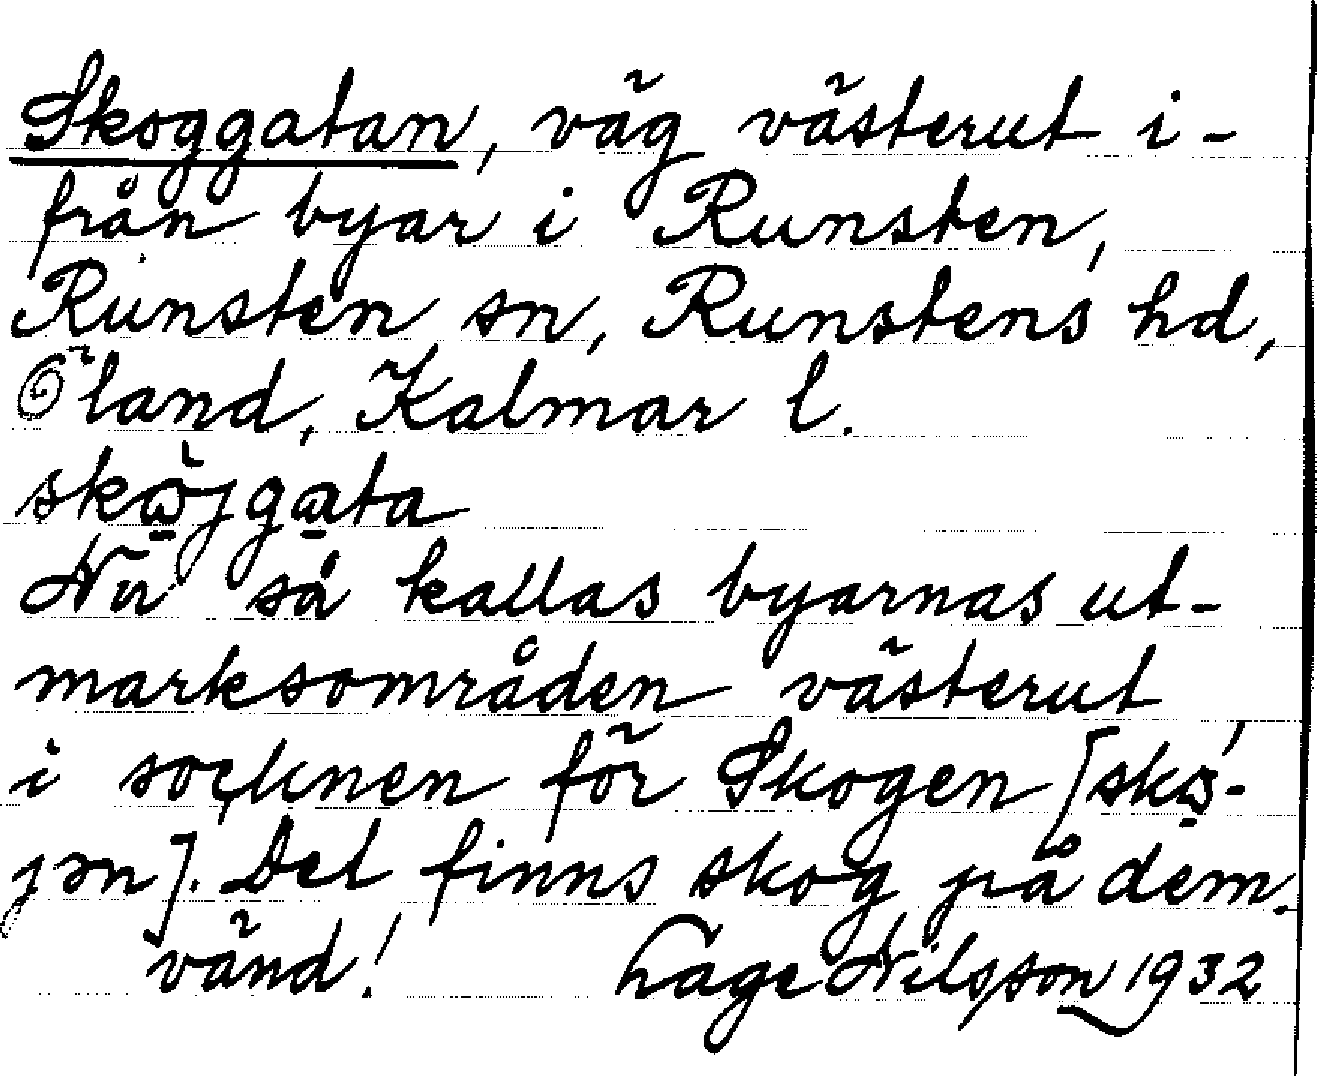 Skoggatan, väg västerut i-
från byar i Runsten,
Runsten sn, Runstens hd,
Öland, Kalmar l.
skὼ̱jgα̱ta
Nu så kallas byarnas ut-
marksområden västerut
i socknen för Skogen [skώ̱-
jən]. Det finns skog på dem.
vänd! Lage Nilsson 1932